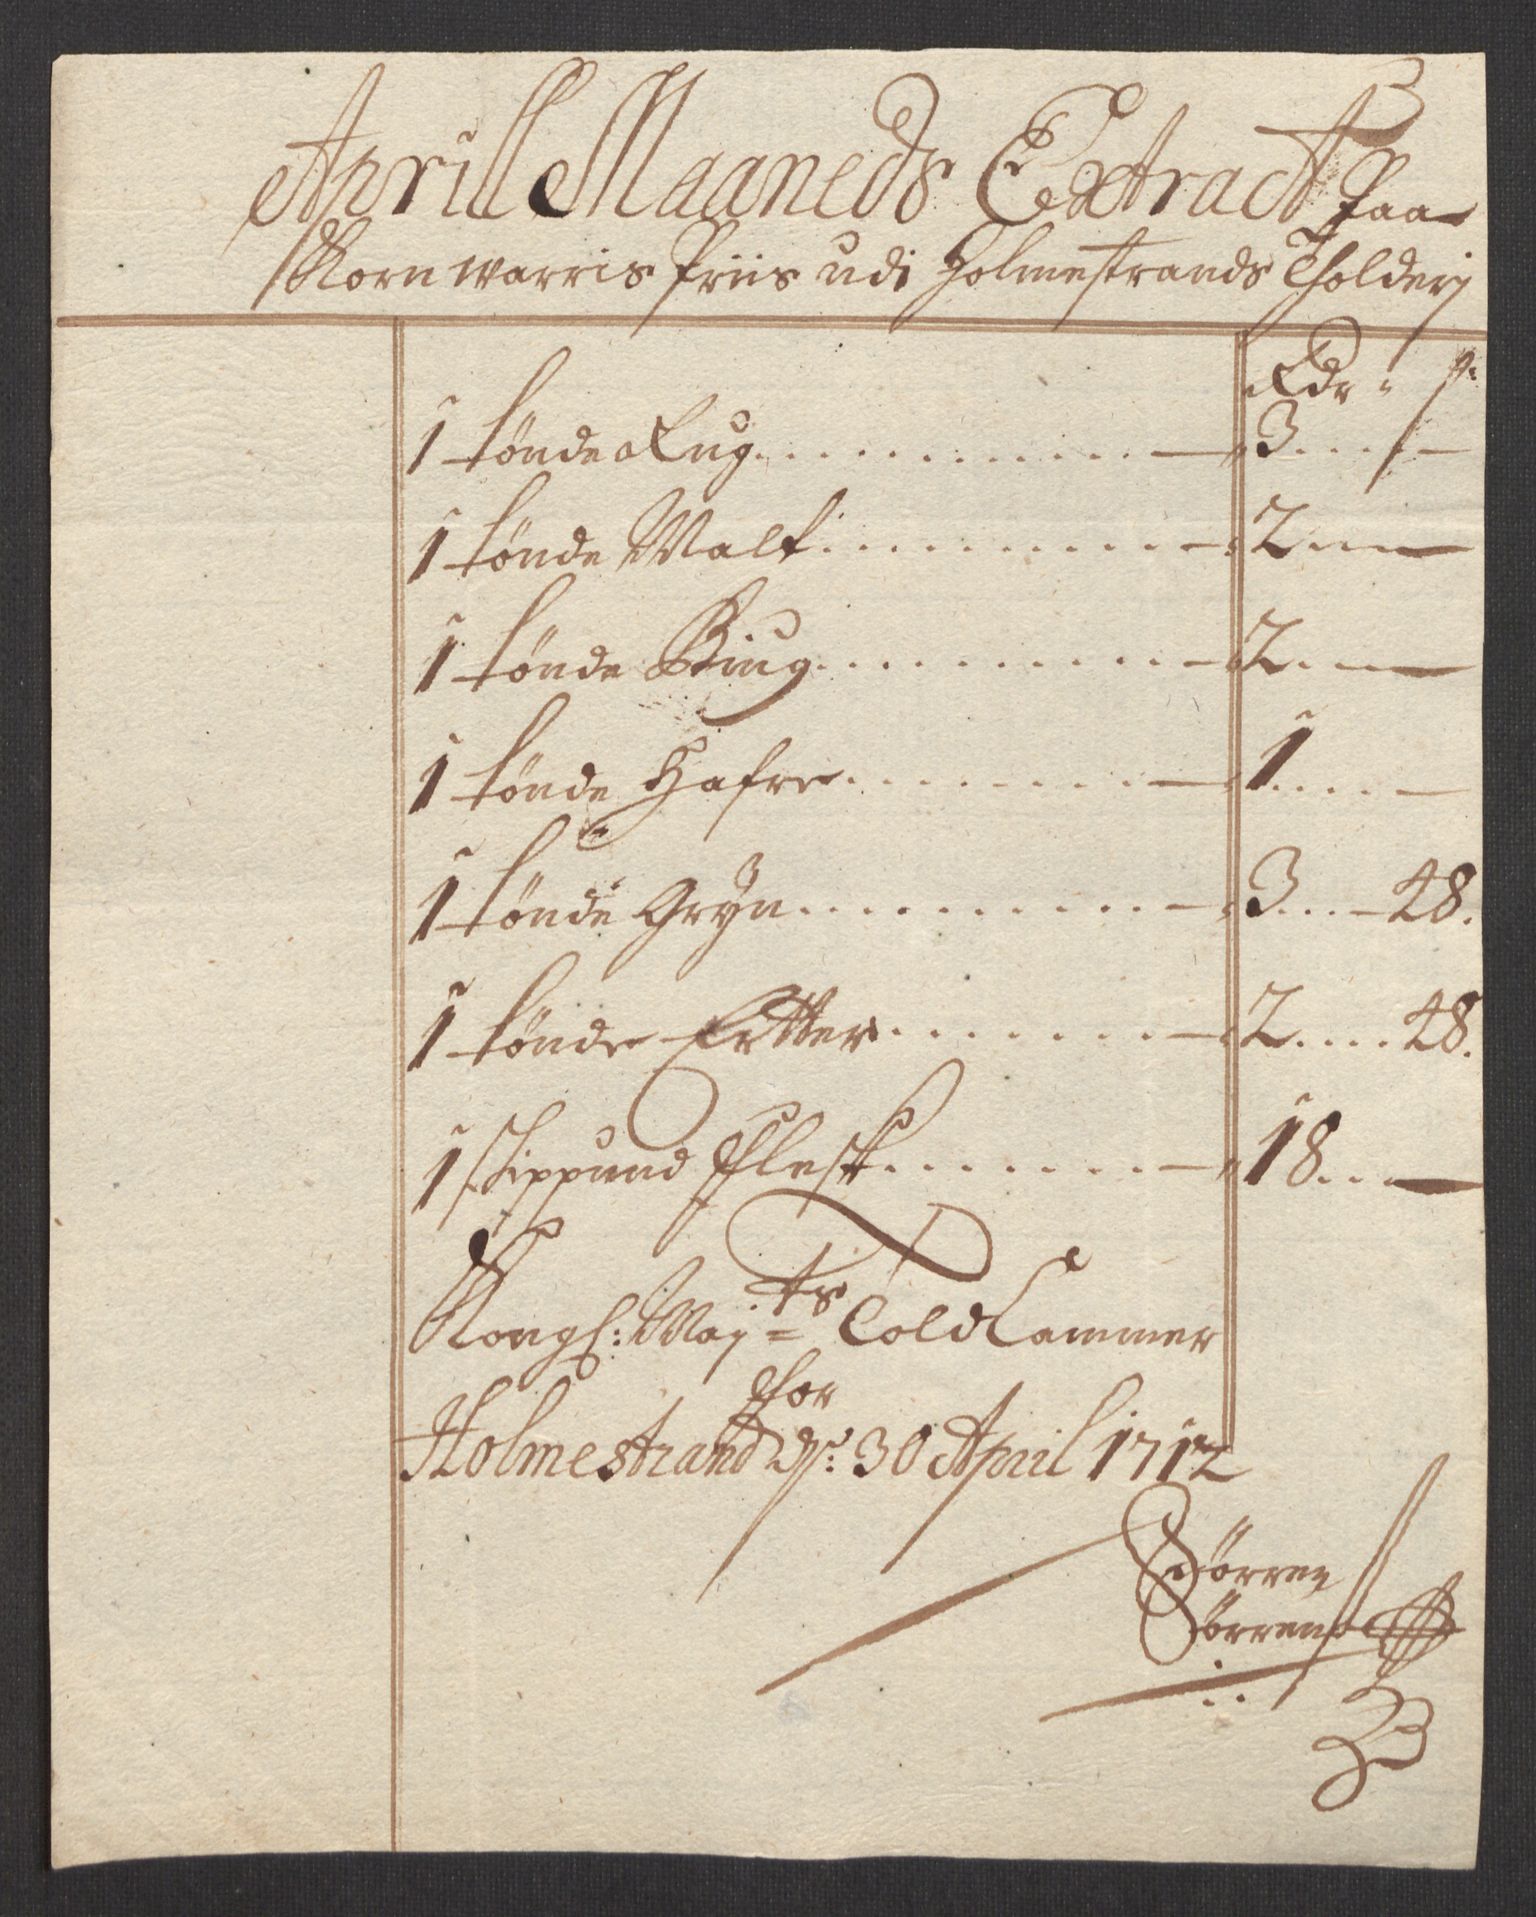 Aprill Maaneds Extract Paa
Kornwarris Priis udi Holmestrands Tholderj
Rdr s:
1 tønde Rug 3
1 tønde Malt 2
1 tønde Biug 2
1 tønde Hafre 1
1 tønde Grÿn 3 48.
1 tønde Ertter 2 48.
1 Skippund Flesk 18
Kongl: Maj=ts Told Cammer
for
Holmestrand ds: 30 April 1712
Sørren
Sørrens